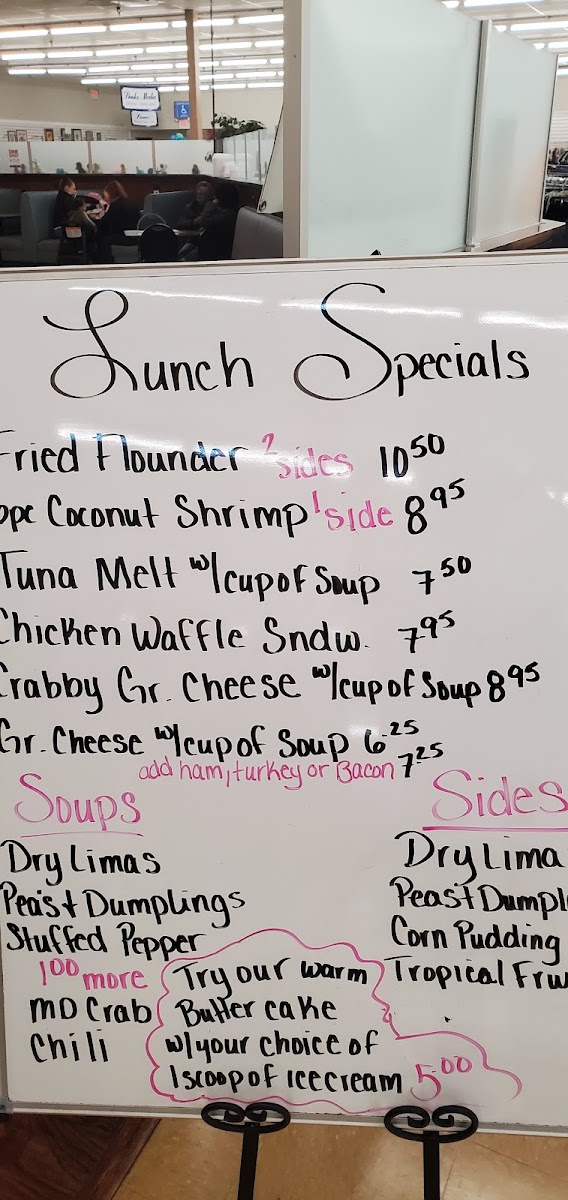 Lunch Specials
Fried Flounder 2 sides 10 50
pc Coconut Shrimp 1 side 8 95
Tuna Melt w/cup of Soup 7 50
Chicken Waffle Sndw. 7 95
Crabby Gr. Cheese w/cup of Soup 8 95
Gr. Cheese w/cup of Soup 6 25
add ham, turkey or Bacon 7 25
Soups
Dry Limas
Peas + Dumplings
Stuffed Pepper
1 00 more
MD Crab
Chili
Sides
Dry Lima
Peas + Dumpl
Corn Pudding
Tropical Fru
Try our warm
Butter cake
w/your choice of
1 scoop of icecream 5 00